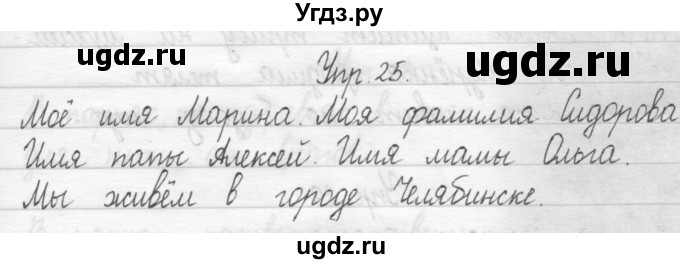 Угдз.ру
ugdz.ru
ugdz.ru
Упр. 25.
Моё имя Марина. Моя фамилия Сидорова
Имя папы Алексей. Имя мамы Ольга.
Мы живём в городе Челябинске.
ugdz.ru